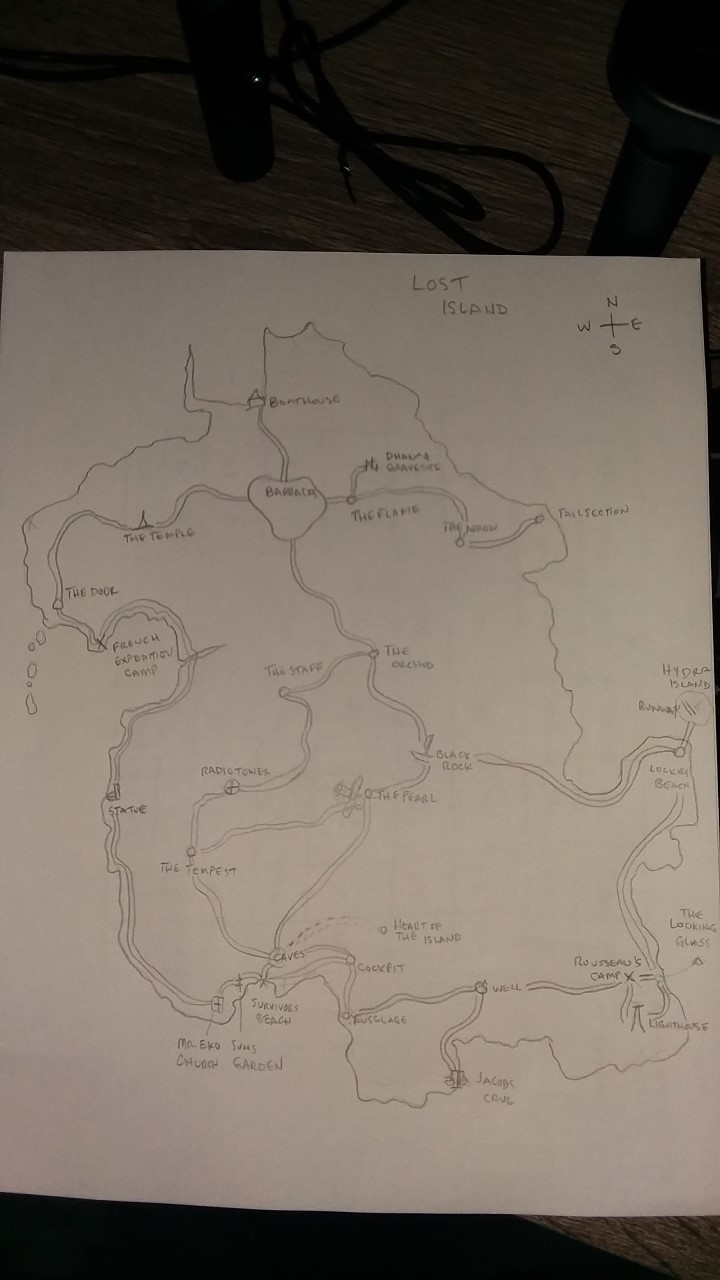 LOST
ISLAND
N
W E
S
BOATHOUSE
DHARMA
GRAVESITE
BARRACKS
THE FLAME
THE ARROW
TAILSECTION
THE TEMPLE
THE DOOR
FRENCH
EXPEDITION
CAMP
THE STAFF
THE
ORCHID
HYDRA
ISLAND
RUNWAY
LOCKES
BEACH
BLACK
ROCK
RADIOTOWER
THE PEARL
STATUE
THE TEMPEST
HEART OF
THE ISLAND
THE
LOOKING
GLASS
CAVES
COCKPIT
ROUSSEAU'S
CAMP
WELL
SURVIVORS
BEACH
LIGHTHOUSE
MR. EKO
CHURCH
SUNS
GARDEN
JACOBS
CAVE